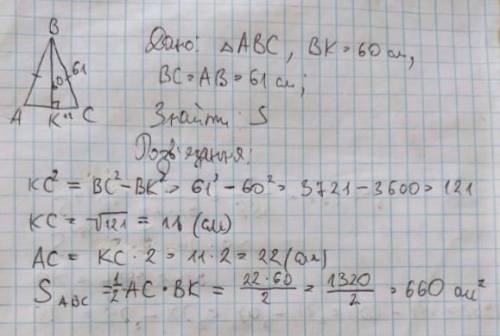 B
60
61
A K 11 C
Дано: △ABC, BK = 60 см,
BC = AB = 61 см;
Знайти: S
Розв'язання:
KC² = BC² - BK² = 61² - 60² = 3721 - 3600 = 121
KC = √121 = 11 (см)
AC = KC · 2 = 11 · 2 = 22 (см)
S ABC = 1/2 AC · BK = 22 · 60 / 2 = 1320 / 2 = 660 см²